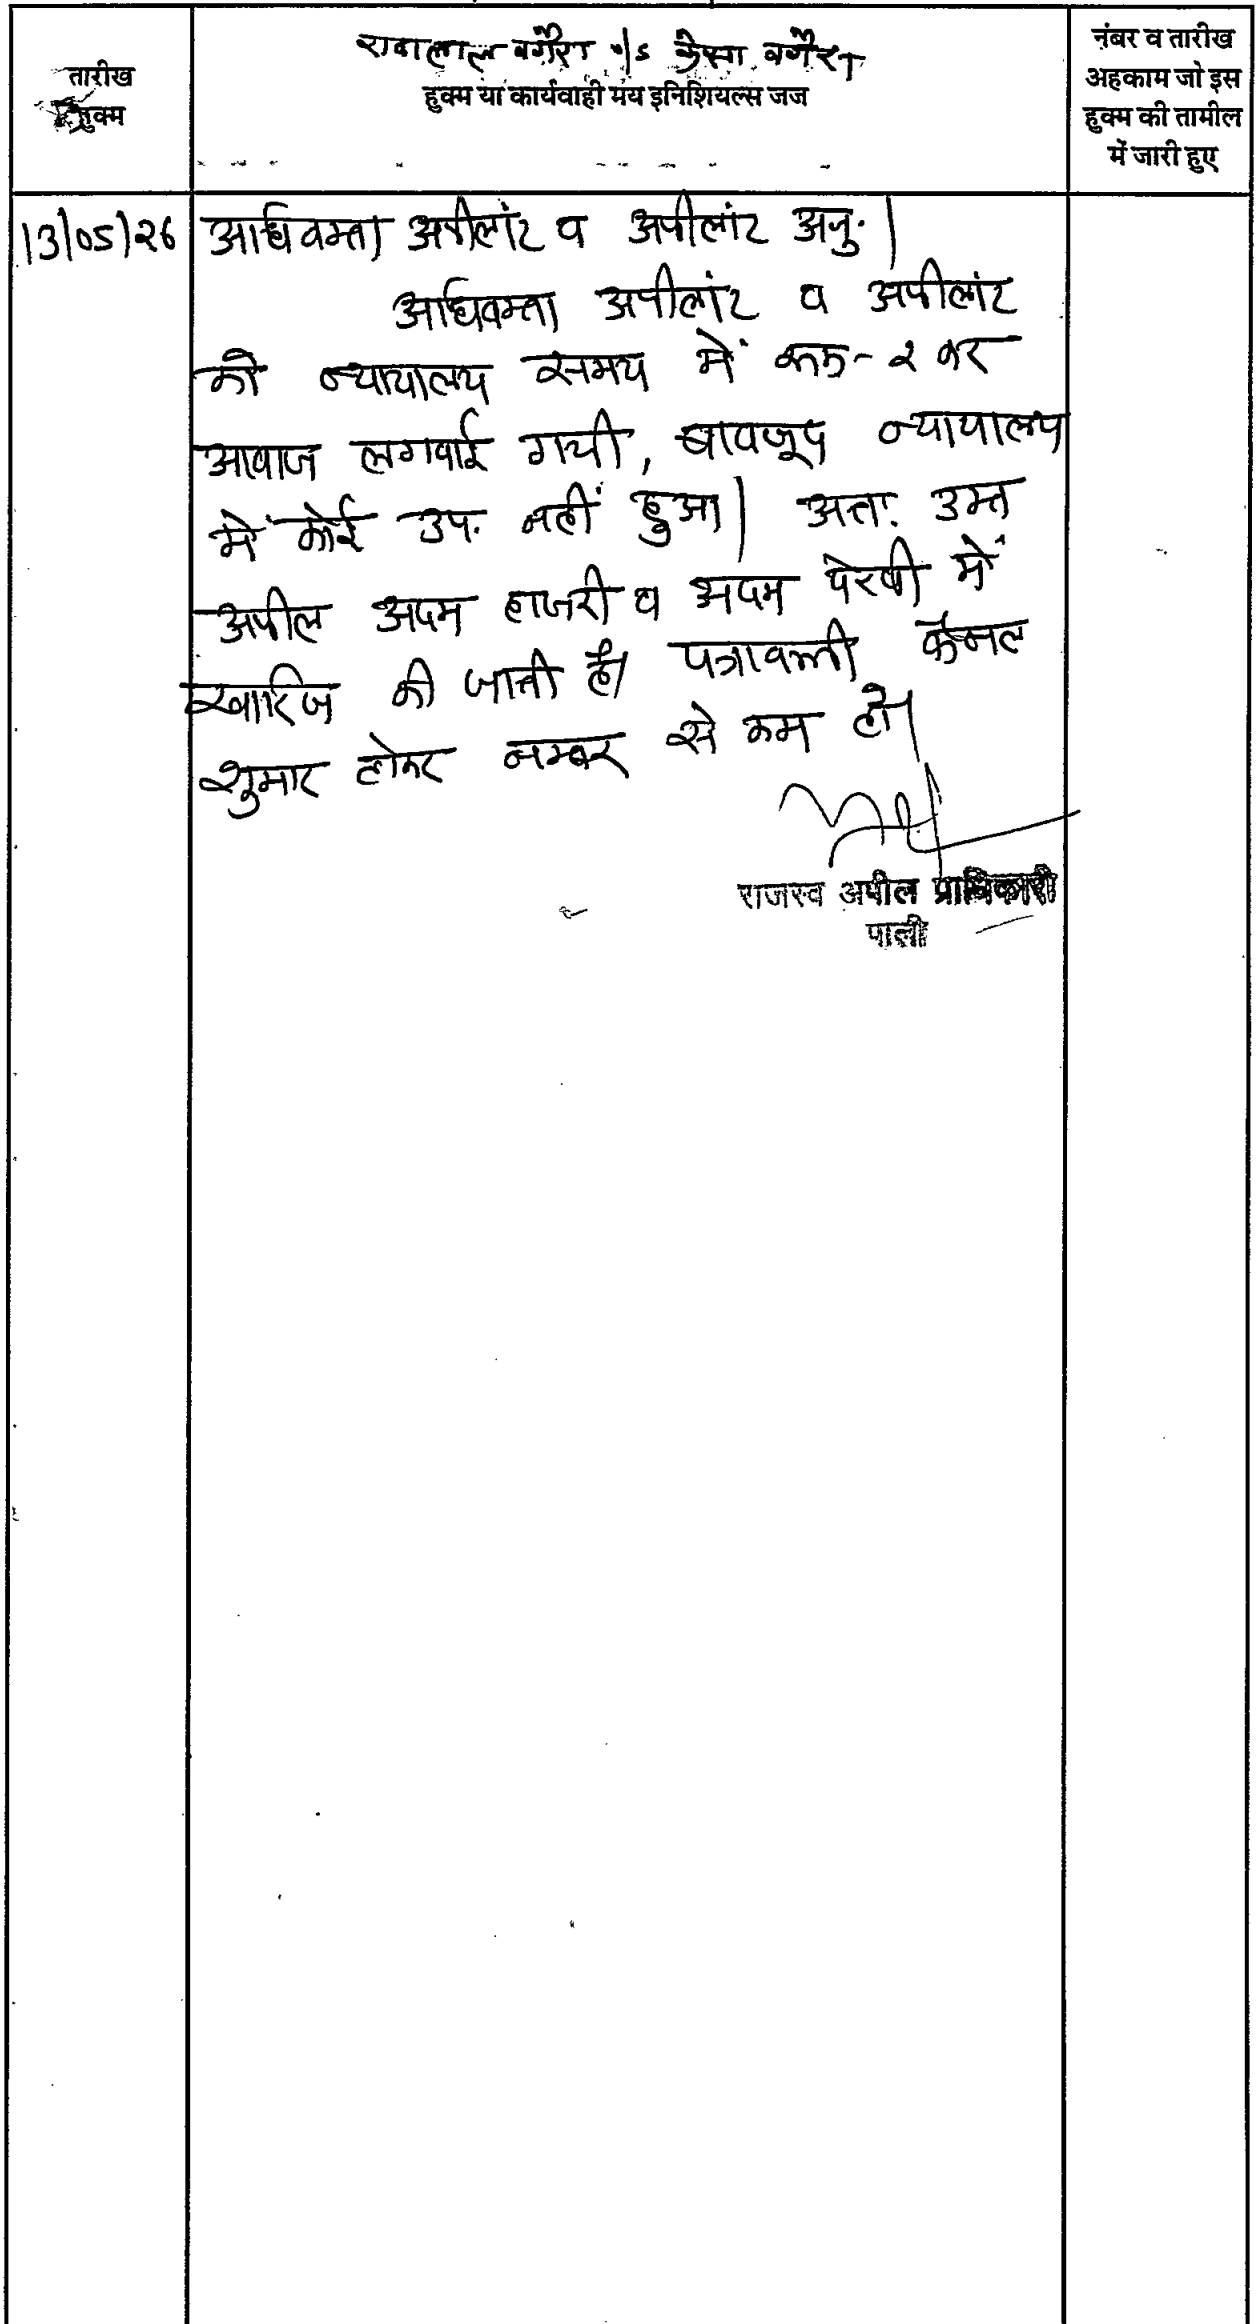 वगैरा v/s केसा वगैरा
तारीख
हुक्म
हुक्म या कार्यवाही मय इनिशियल्स जज
नंबर व तारीख
अहकाम जो इस
हुक्म की तामील
में जारी हुए
13/05/26 अधिवक्ता अपीलांट व अपीलांट अनु.।
अधिवक्ता अपीलांट व अपीलांट
को न्यायालय समय में रूक-२ कर
आवाज लगवाई गयी, बावजूद न्यायालय
में कोई उप. नहीं हुआ। अतः उक्त
अपील अदम हाजरी व अदम पेरवी में
खारिज की जाती है। पत्रावली फैसल
शुमार होकर नम्बर से कम हो।
राजस्व अपील प्राधिकारी
पाली